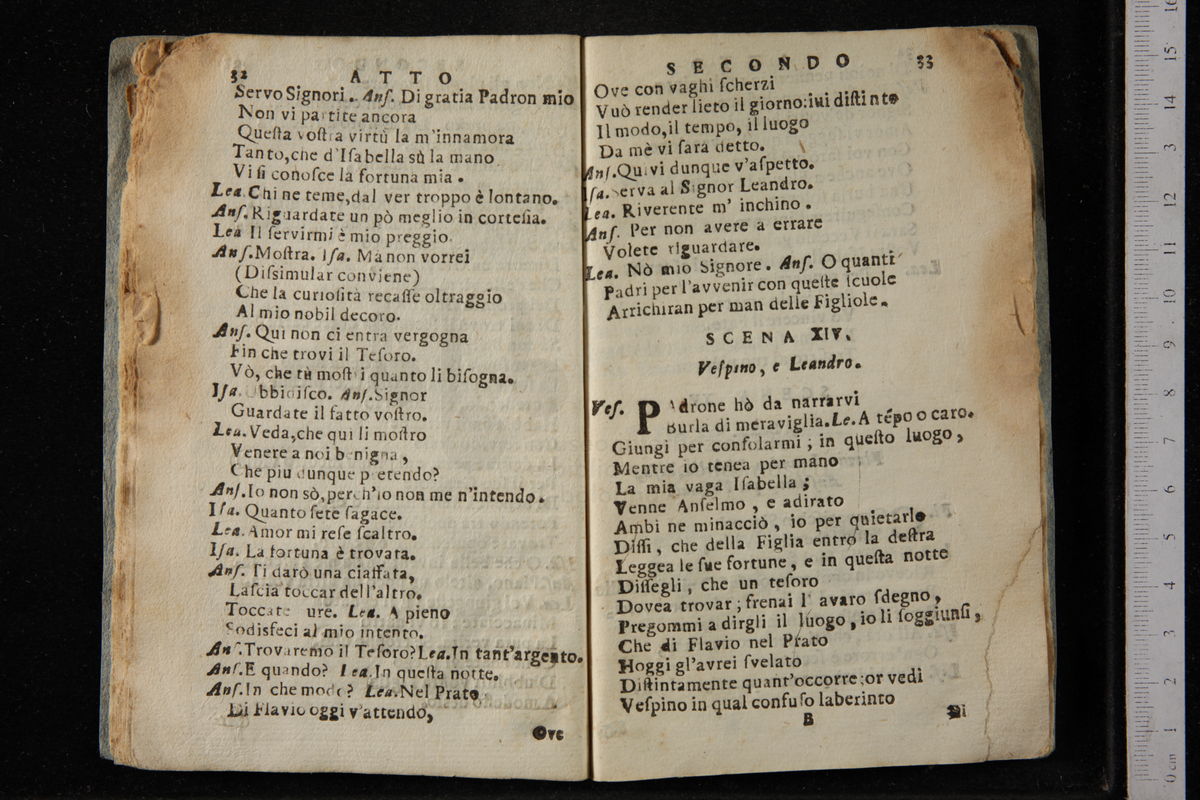 32 ATTO
Servo Signori. Anſ. Di gratia Padron mio
Non vi partite ancora
Queſta voſtra virtù la m'innamora
Tanto,che d'Iſabella sù la mano
Vi ſi conoſce la fortuna mia.
Lea. Chi ne teme,dal ver troppo è lontano.
Anſ. Riguardate un pò meglio in corteſia.
Lea Il ſervirmi è mio preggio.
Anſ. Moſtra. Iſa. Ma non vorrei
(Diſsimular conviene)
Che la curioſità recaſſe oltraggio
Al mio nobil decoro.
Anſ. Qui non ci entra vergogna
Fin che trovi il Teſoro.
Vò, che tù moſtri quanto li biſogna.
Iſa. Ubbidiſco. Anſ. Signor
Guardate il fatto voſtro.
Lea. Veda,che quì li moſtro
Venere a noi benigna,
Che piu dunque pretendo?
Anſ. Io non sò,perch'io non me n'intendo.
Iſa. Quanto ſete ſagace.
Lea. Amor mi reſe ſcaltro.
Iſa. La fortuna è trovata.
Anſ. Ti darò una ciaffata,
Laſcia toccar dell'altro.
Toccate ure. Lea. A pieno
Sodisfeci al mio intento.
Anſ. Trovaremo il Teſoro? Lea. In tant'argento.
Anſ. E quando? Lea. In queſta notte.
Anſ. In che modo? Lea. Nel Prato
Di Flavio oggi v'attendo,
Ove
SECONDO 33
Ove con vaghi ſcherzi
Vuò render lieto il giorno: ivi diſtinto
Il modo,il tempo, il luogo
Da mè vi ſarà detto.
Anſ. Quivi dunque v'aſpetto.
Iſa. Serva al Signor Leandro.
Lea. Riverente m' inchino.
Anſ. Per non avere a errare
Volete riguardare.
Lea. Nò mio Signore. Anſ. O quanti
Padri per l'avvenir con queſte ſcuole
Arrichiran per man delle Figliole.
SCENA XIV.
Veſpino, e Leandro.
Veſ. PAdrone hò da narrarvi
Burla di meraviglia. Le. A tẽpo o caro.
Giungi per conſolarmi; in queſto luogo,
Mentre io tenea per mano
La mia vaga Iſabella;
Venne Anſelmo, e adirato
Ambi ne minacciò, io per quietarlo
Diſſi, che della Figlia entro la deſtra
Leggea le ſue fortune, e in queſta notte
Diſſegli, che un teſoro
Dovea trovar; frenai l' avaro ſdegno,
Pregommi a dirgli il luogo, io li ſoggiunſi,
Che di Flavio nel Prato
Hoggi gl'avrei ſvelato
Diſtintamente quant'occorre; or vedi
Veſpino in qual confuſo laberinto
B Di